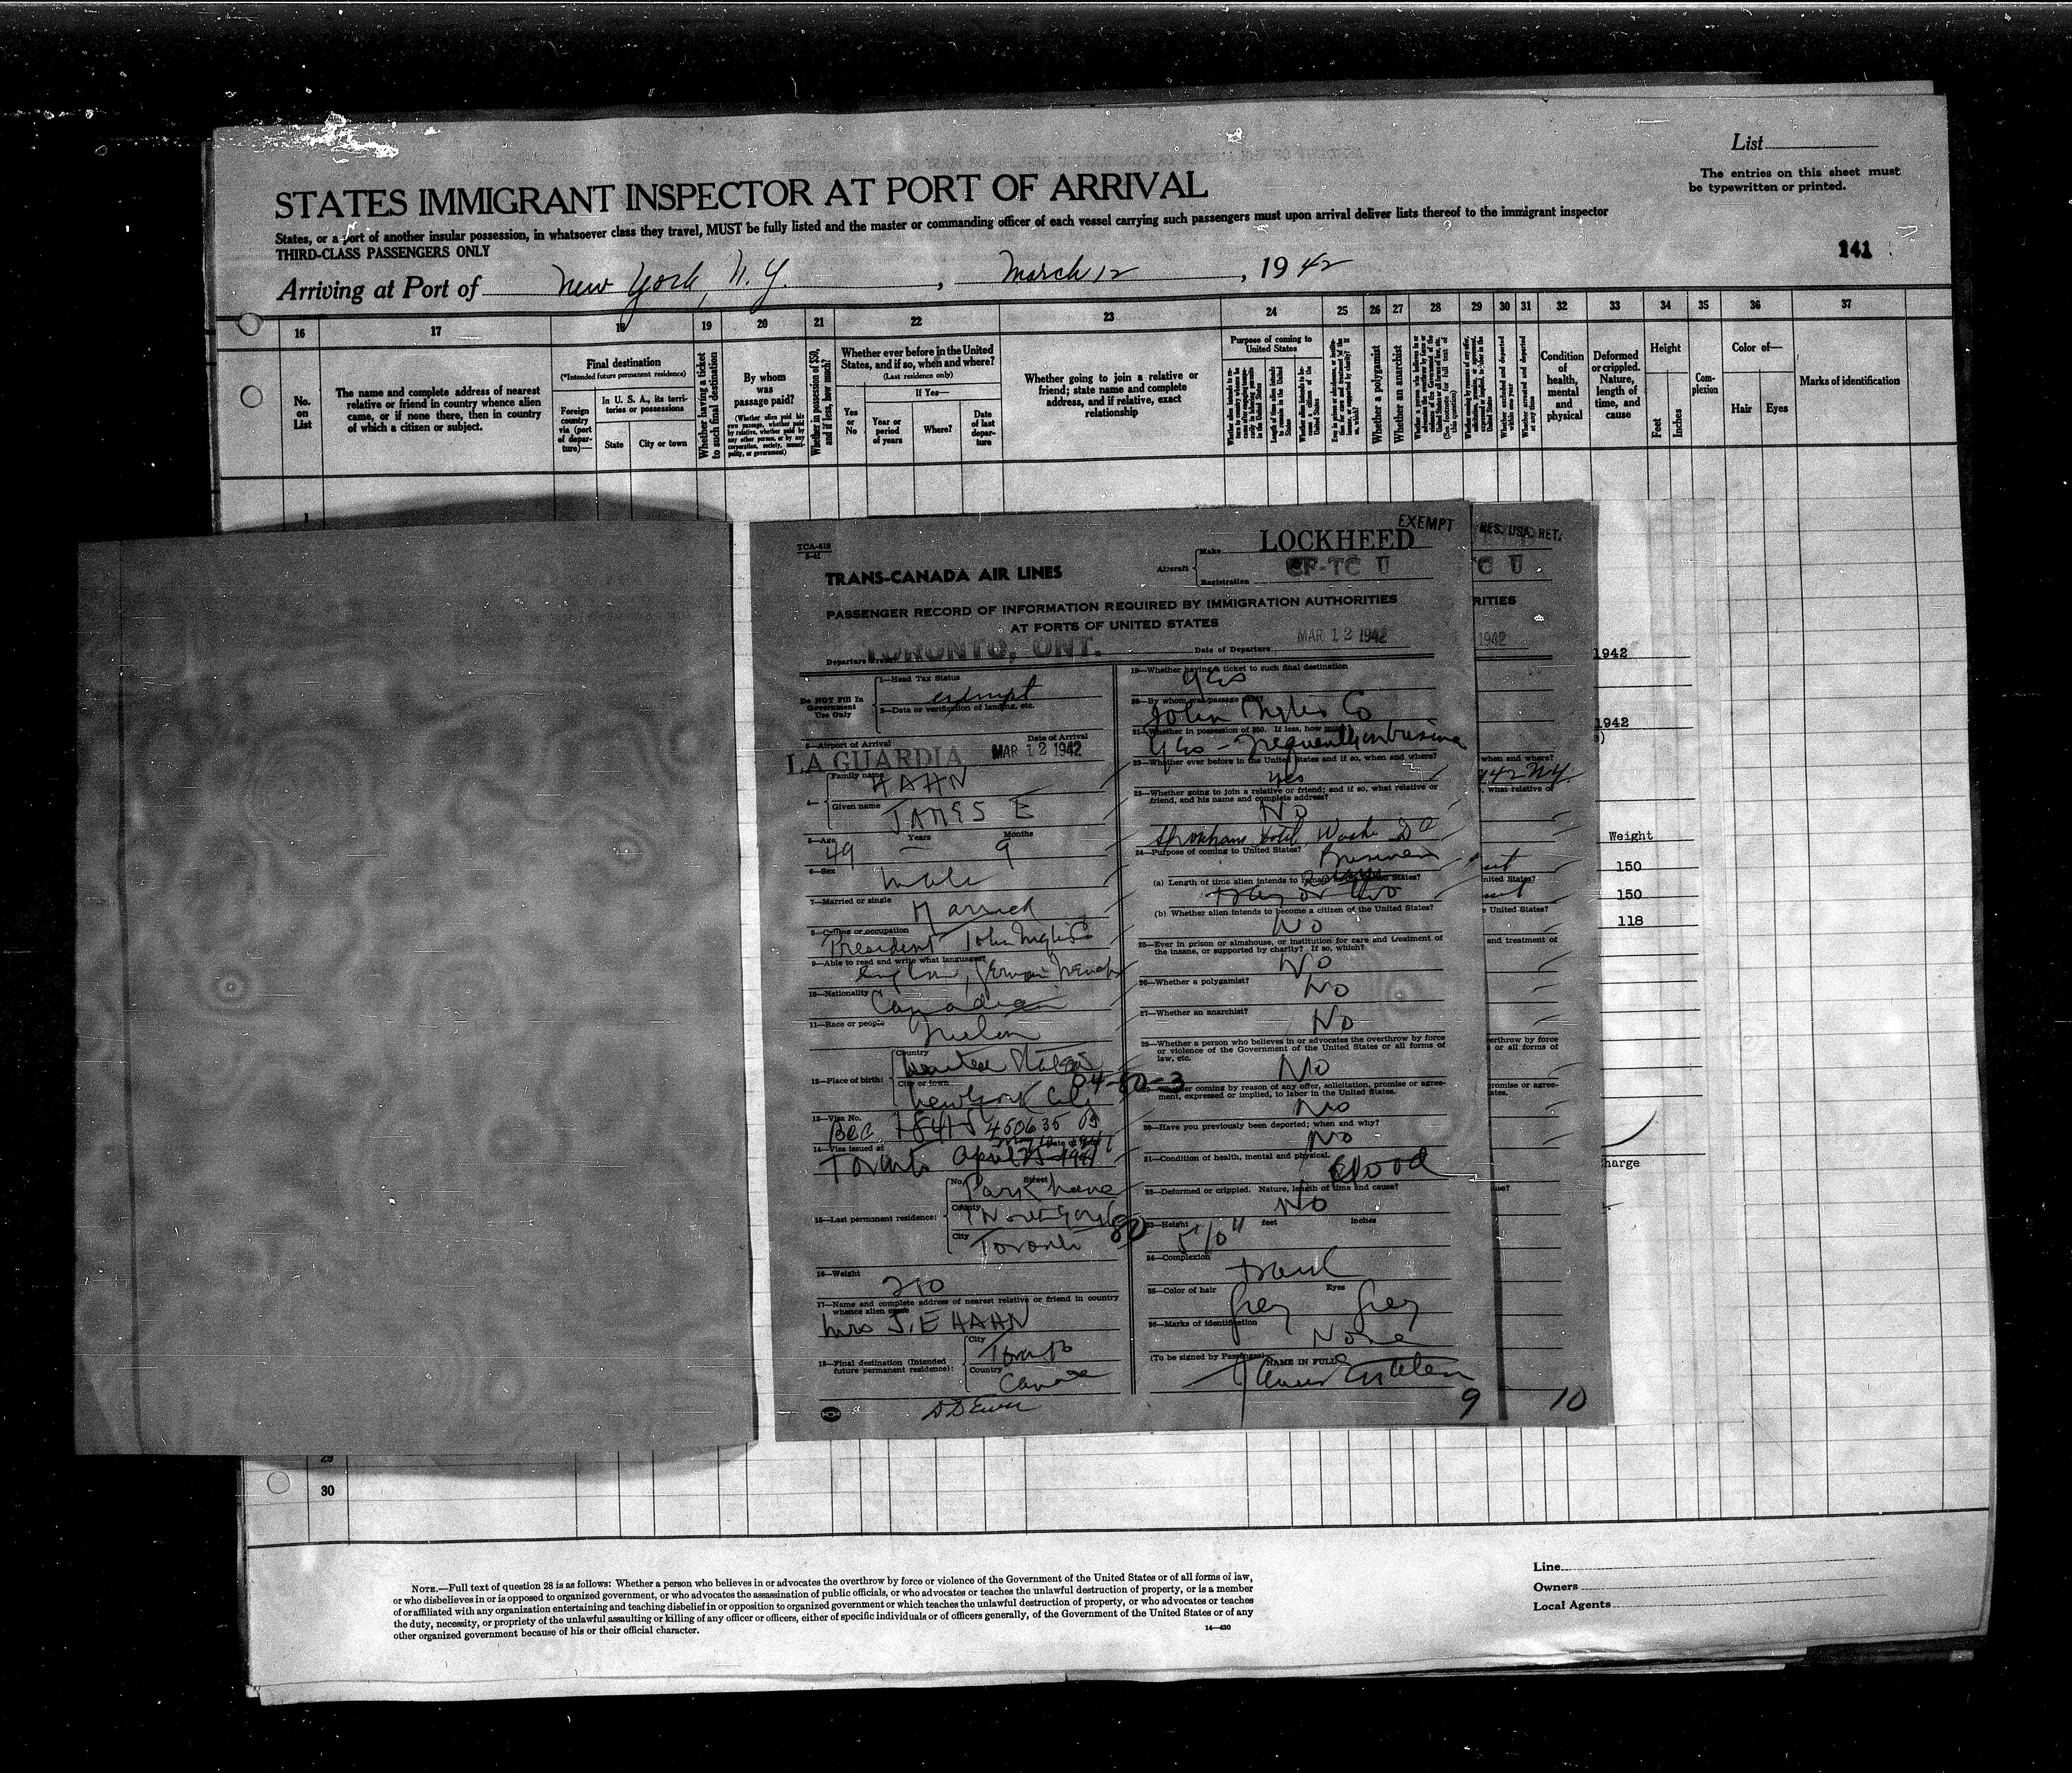 List
The entries on this sheet must
be typewritten or printed.
STATES IMMIGRANT INSPECTOR AT PORT OF ARRIVAL
States, or a port of another insular possession, in whatsoever class they travel, MUST be fully listed and the master or commanding officer of each vessel carrying such passengers must upon arrival deliver lists thereof to the immigrant inspector
THIRD-CLASS PASSENGERS ONLY
241
Arriving at Port of New York, N.Y., March 12, 1942
16 17 18 19 20 21 22 23 24 25 26 27 28 29 30 31 32 33 34 35 36 37
No.
on
List
The name and complete address of nearest
relative or friend in country whence alien
came, or if none there, then in country
of which a citizen or subject.
Final destination
(*Intended future permanent residence)
Foreign
country
via (port
of depar-
ture)—
In U. S. A., its terri-
tories or possessions
State
City or town
Whether having a ticket
to such final destination
By whom
was
passage paid?
(Whether alien paid his
own passage, whether paid
by relative, whether paid by
any other person, or by any
corporation, society, munici-
pality, or government)
Whether in possession of $50,
and if less, how much?
Whether ever before in the United
States, and if so, when and where?
(Last residence only)
Yes
or
No
If Yes—
Year or
period
of years
Where?
Date
of last
depar-
ture
Whether going to join a relative or
friend; state name and complete
address, and if relative, exact
relationship
Purpose of coming to
United States
Whether a polygamist
Whether an anarchist
Condition
of
health,
mental
and
physical
Deformed
or crippled.
Nature,
length of
time, and
cause
Height
Feet
Inches
Com-
plexion
Color of—
Hair
Eyes
Marks of identification
TCA-618
TRANS-CANADA AIR LINES
EXEMPT
Aircraft
Make LOCKHEED
Registration CF-TC U
PASSENGER RECORD OF INFORMATION REQUIRED BY IMMIGRATION AUTHORITIES
AT PORTS OF UNITED STATES
TORONTO, ONT.
MAR 12 1942
Date of Departure
Do NOT Fill In
Government
Use Only
1—Head Tax Status
exempt
2—Data or verification of landing, etc.
3—Airport of Arrival
Date of Arrival
LA GUARDIA MAR 12 1942
4—
Family name
HAHN
Given name
JAMES E
5—Age
Years
Months
49 9
6—Sex
Male
7—Married or single
Married
8—Calling or occupation
President John Inglis Co
9—Able to read and write what languages
English, German French
10—Nationality
Canadian
11—Race or people
12—Place of birth:
Country
United States
City or town
New York City
04-80-3
13—Visa No.
BCC 450635
14—Visa issued at
Toronto April 25 1941
15—Last permanent residence:
No. Street
Park Lane
County
North York
80
City
Toronto
16—Weight
210
17—Name and complete address of nearest relative or friend in country
whence alien came
Mrs J. E HAHN
18—Final destination (Intended
future permanent residence):
City
Toronto
Country
Canada
19—Whether having a ticket to such final destination
Yes
20—By whom was passage paid?
John Inglis Co
21—Whether in possession of $50. If less, how much?
Yes - Frequently on business
22—Whether ever before in the United States and if so, when and where?
Yes
23—Whether going to join a relative or friend; and if so, what relative or
friend, and his name and complete address?
No
Shoreham Hotel, Wash DC
24—Purpose of coming to United States?
Business
(a) Length of time alien intends to remain in United States?
day or two
(b) Whether alien intends to become a citizen of the United States?
No
25—Ever in prison or almshouse, or institution for care and treatment of
the insane, or supported by charity? If so, which?
No
26—Whether a polygamist?
No
27—Whether an anarchist?
No
28—Whether a person who believes in or advocates the overthrow by force
or violence of the Government of the United States or all forms of
law, etc.
No
29—Whether coming by reason of any offer, solicitation, promise or agree-
ment, expressed or implied, to labor in the United States.
No
30—Have you previously been deported; when and why?
No
31—Condition of health, mental and physical.
Good
32—Deformed or crippled. Nature, length of time and cause?
No
33—Height
feet
inches
5'10"
34—Complexion
35—Color of hair
Eyes
Grey Grey
36—Marks of identification
None
(To be signed by Passenger)
NAME IN FULL
9
RES. USA. RET.
C U
RITIES
1942
when and where?
what relative of
nited States?
e United States?
and treatment of
erthrow by force
or all forms of
promise or agree-
ates.
10
1942
1942
Weight
150
150
118
harge
29
30
NOTE.—Full text of question 28 is as follows: Whether a person who believes in or advocates the overthrow by force or violence of the Government of the United States or of all forms of law,
or who disbelieves in or is opposed to organized government, or who advocates the assassination of public officials, or who advocates or teaches the unlawful destruction of property, or is a member
of or affiliated with any organization entertaining and teaching disbelief in or opposition to organized government or which teaches the unlawful destruction of property, or who advocates or teaches
the duty, necessity, or propriety of the unlawful assaulting or killing of any officer or officers, either of specific individuals or of officers generally, of the Government of the United States or of any
other organized government because of his or their official character.
14—430
Line
Owners
Local Agents